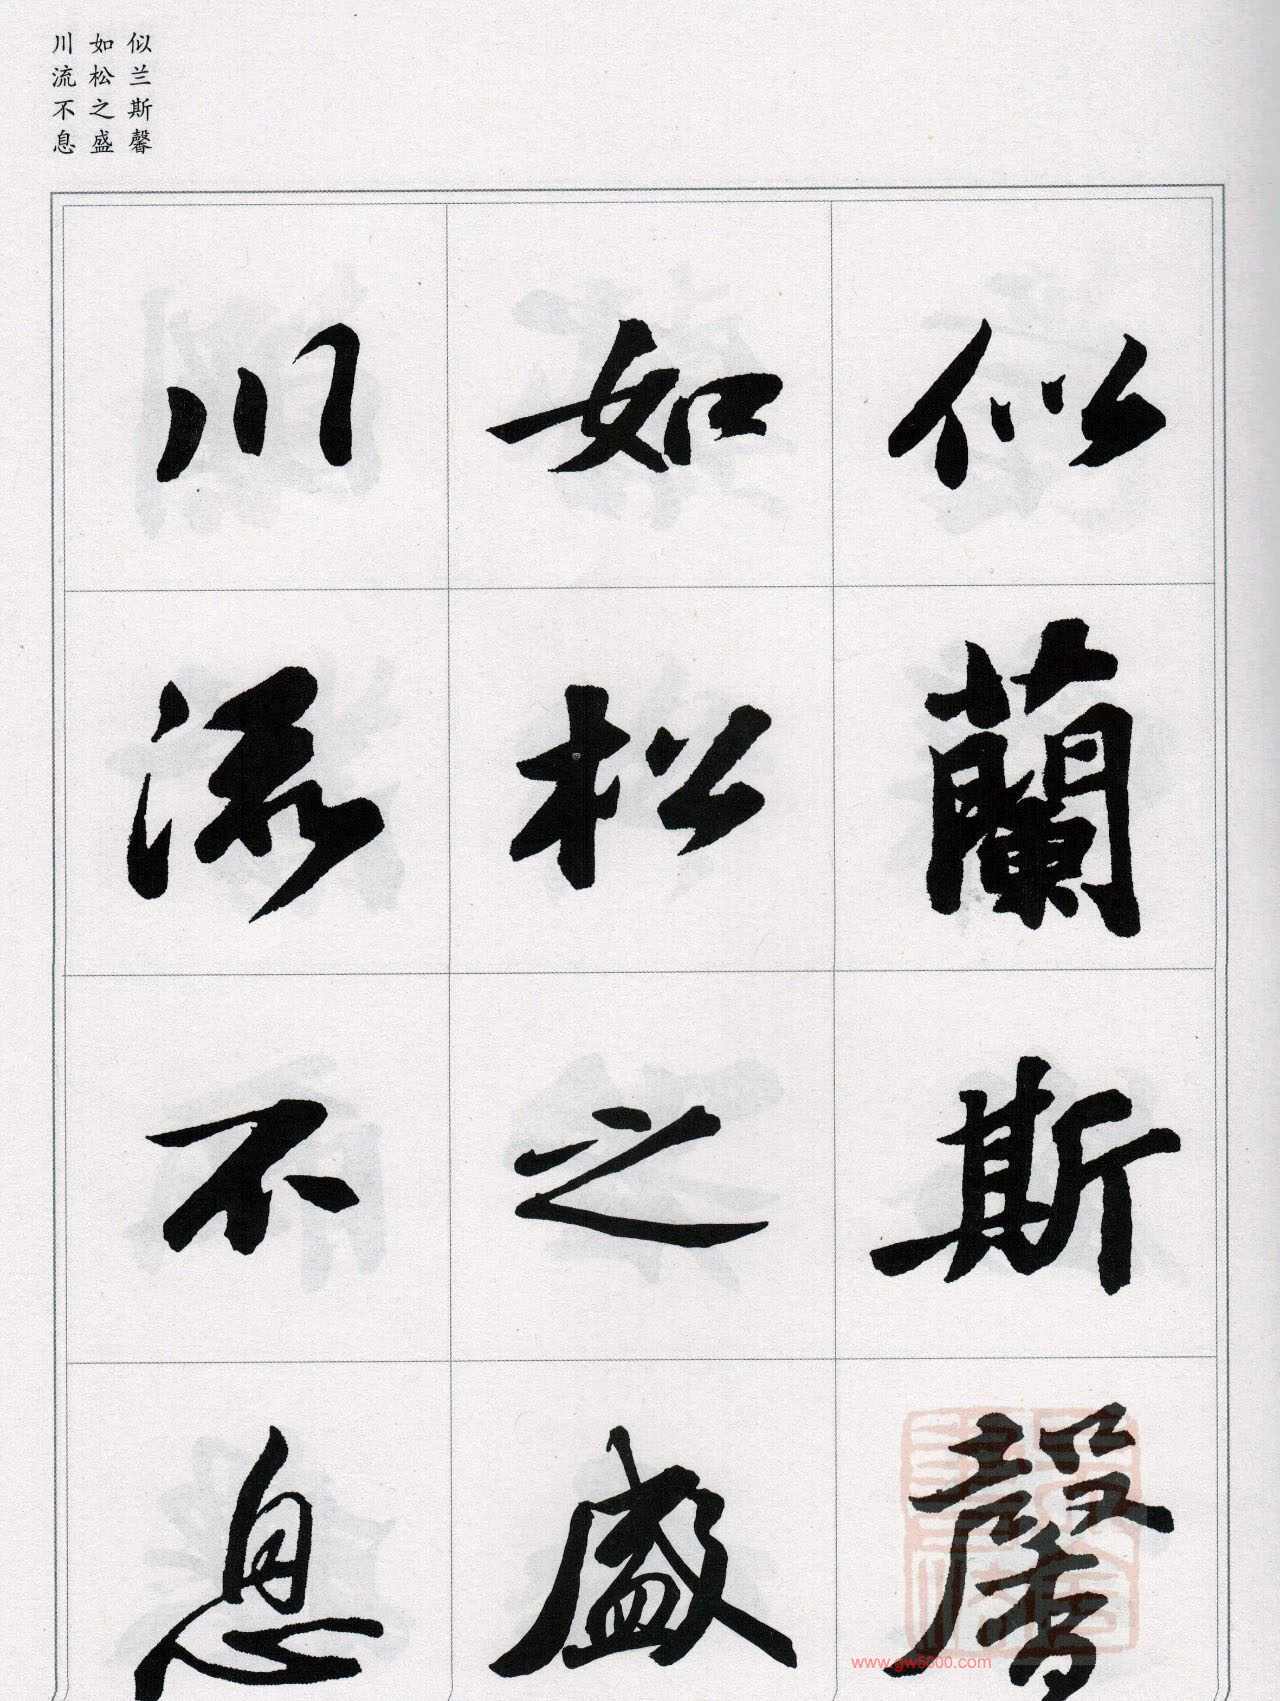 似兰斯馨
如松之盛
川流不息
似蘭斯馨
如松之盛
川流不息
www.gw5000.com